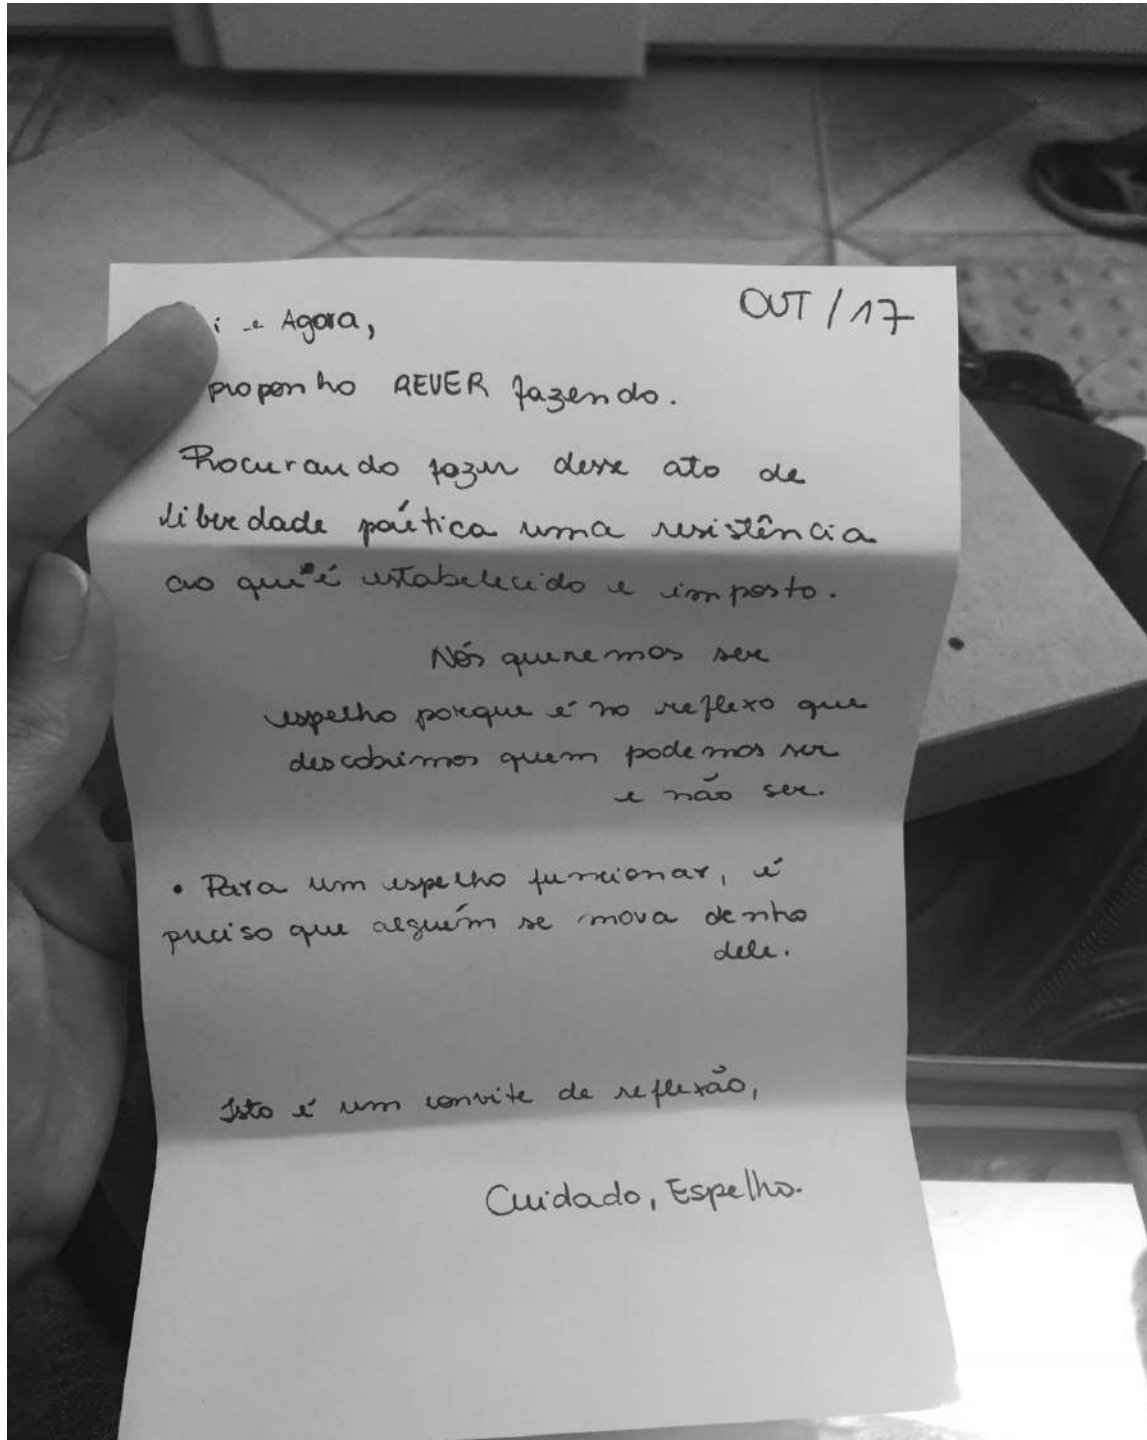 i e Agora,
OUT / 17
proponho REVER fazendo.
Procurando fazer desse ato de
liberdade poética uma resistência
ao que é estabelecido e imposto.
Nós queremos ser
espelho porque é no reflexo que
descobrimos quem podemos ser
e não ser.
• Para um espelho funcionar, é
preciso que alguém se mova dentro
dele.
Isto é um convite de reflexão,
Cuidado, Espelho.